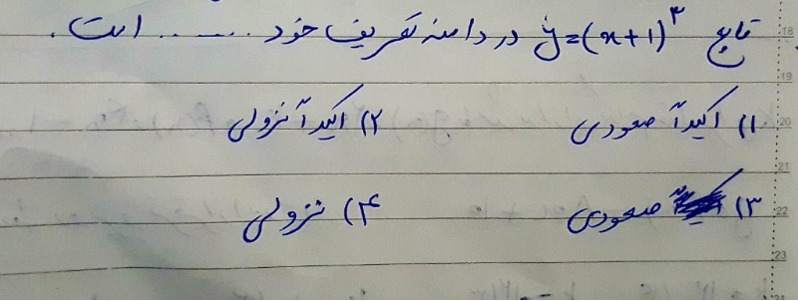 تابع y=(x+1)^۳ در دامنه تعریف خود ....... است.
۱) اکیداً صعودی ۲) اکیداً نزولی
۳) صعودی ۴) نزولی
18
19
20
21
22
23